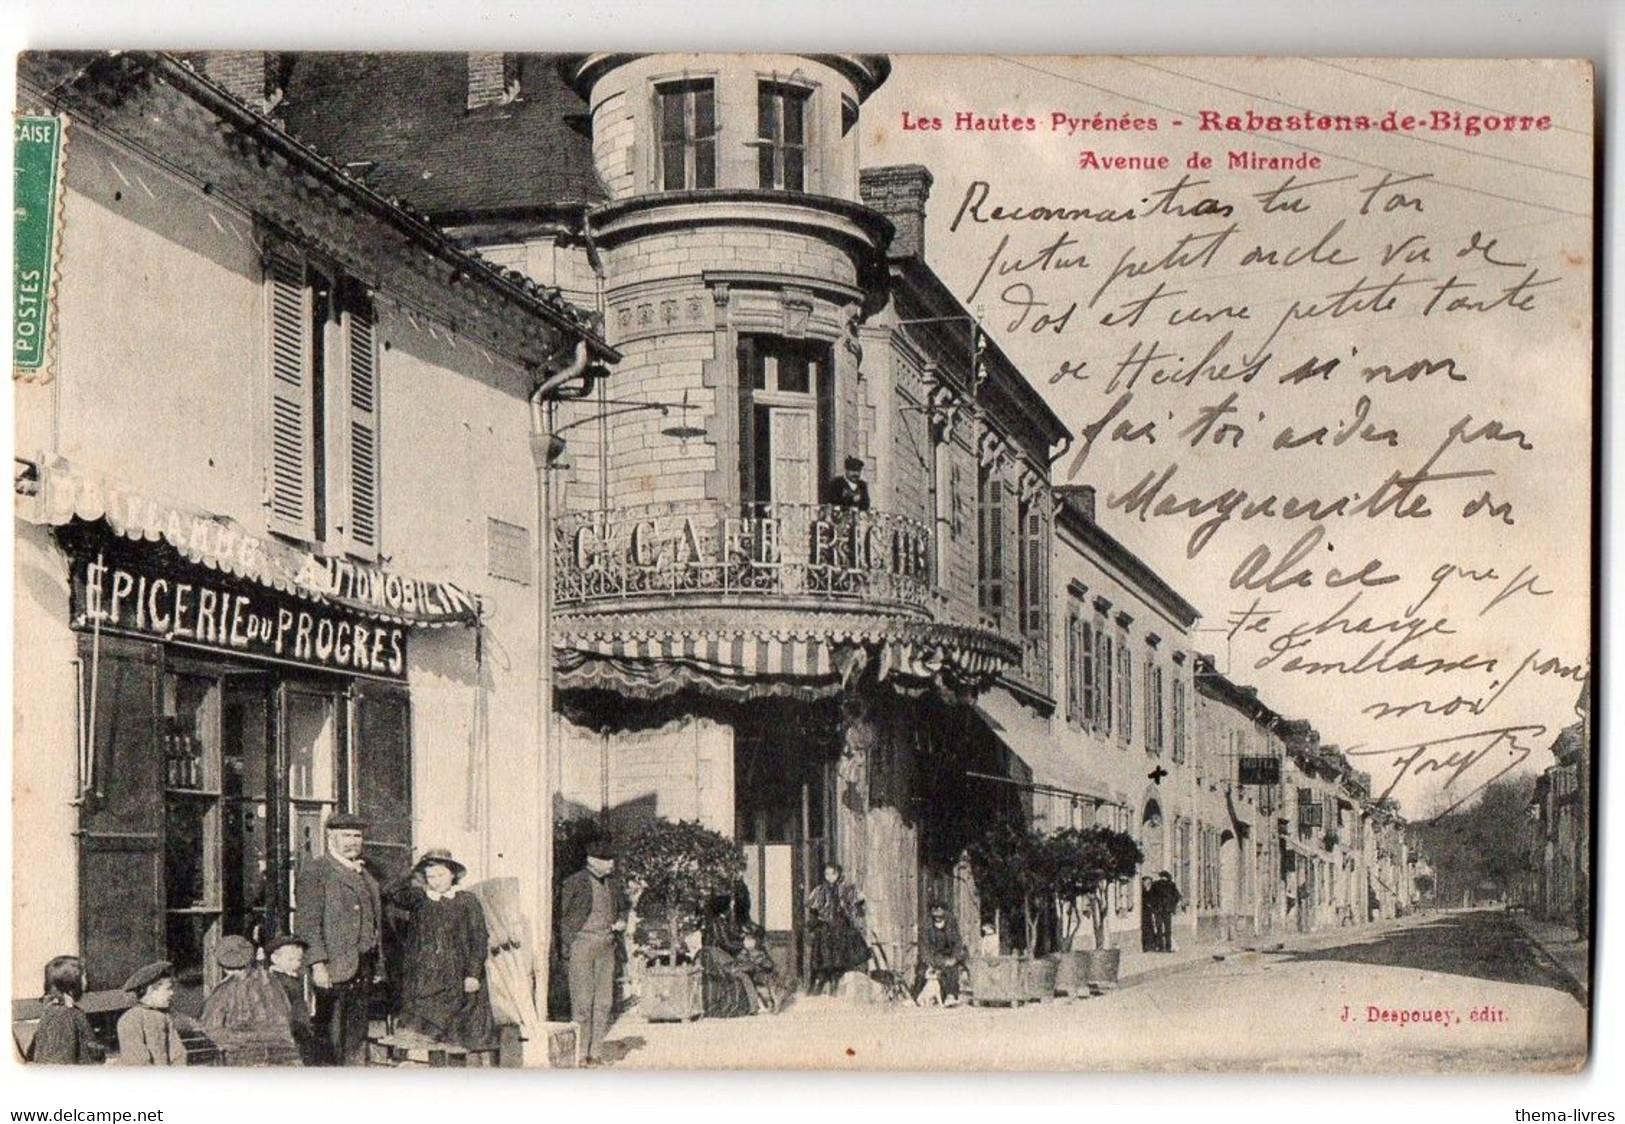 Les Hautes Pyrénées - Rabastens-de-Bigorre
Avenue de Mirande
ÇAISE
POSTES
Reconnaitras tu ton
futur petit oncle vu de
dos et une petite tante
de Hèches si non
fais toi aider par
Margueritte ou
Alice que je
te charge
d'embrasser pour
moi
AUTOMOBILIN
ÉPICERIE DU PROGRÈS
Gd CAFÉ BIGOR
HOTEL
J. Despouey, édit.
www.delcampe.net
thema-livres